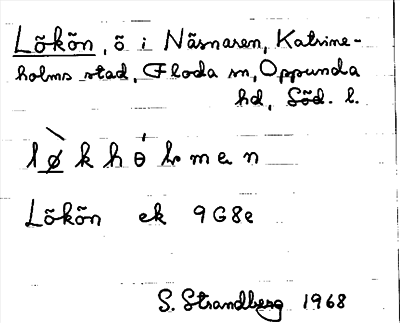 Lökön, ö i Näsnaren, Katrine-
holms stad, Floda sn, Oppunda
hd, Söd. l.
lø̀khɵ́lmen
Lökön ek 9G8e
S. Strandberg 1968